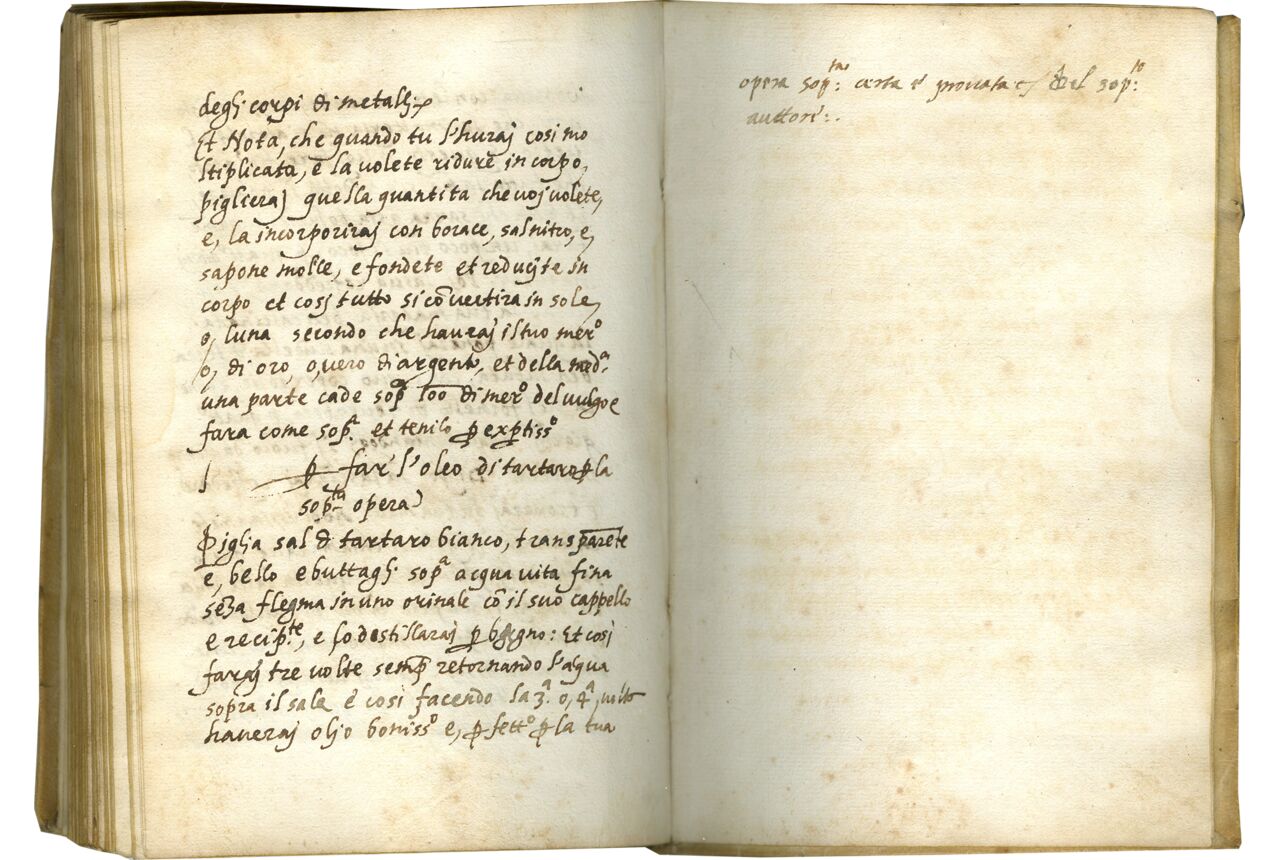 deglj corpi di metallj
Et Nota, che quando tu l'hauraj cosi mo
ltiplicata, e la volete ridure in corpo,
piglieraj quella quantita che voj volete,
e, la incorporiraj con borace, salnitro, e,
sapone molle, e fondete et reducijte in
corpo et cosi tutto si cōvertira in sole,
o, luna secondo che hauraj il tuo merº
o, di oro, o, vero di argento, et della medª.
una parte cade sopª 100 di merº del vulgo e
fara come sopª. et tenilo ꝑ exꝑtissº
ꝑ far l'oleo di tartaro ꝑ la
sopᵗᵃ opera
Piglia sal di tartaro bianco, transparete
e, bello e buttaglj sopª acqua vita fina
senza flegma in uno orinale cō il suo cappello
e recipᵗᵉ, e lo destillaraj ꝑ bagno: Et cosi
faraj tre volte semꝑ retornando l'aqua
sopra il sale e cosi facendo la 3ª. o, 4ª, volta
haveraj oljo bonissº e, ꝑfettº ꝑ la tua
opera sopᵗᵃ: certa e provata del sopᵗᵒ:
auttore:.